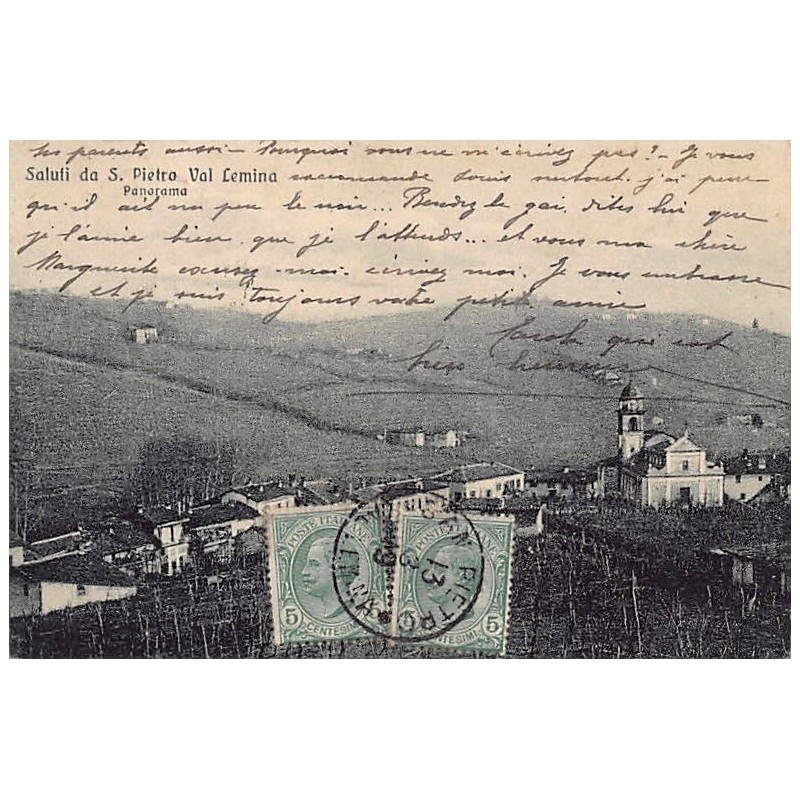 les parents aussi - Pourquoi vous ne m'écrivez pas? - Je vous
Saluti da S. Pietro Val Lemina
recommande Louis surtout. j'ai peur
Panorama
qu'il ait un peu le noir... Rendez le gai, dites lui que
je l'aime bien, que je l'attends... et vous ma chère
Marguerite excusez-moi. écrivez moi. Je vous embrasse
et je suis toujours votre petite amie
qui est
bien heureuse
POSTE ITALIANE
5
CENTESIMI
POSTE ITALIANE
CENTESIMI
5
PIETRO
13